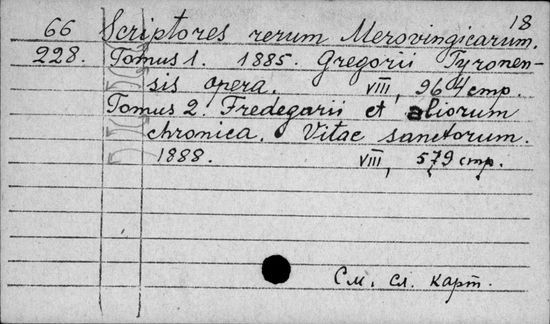 18
66 Scriptores rerum Merovingicarum.
228. Tomus 1. 1885. Gregorii Tyronen-
sis opera. VIII, 964 стр.
Tomus 2. Fredegarii et aliorum
chronica. Vitae sanctorum.
1888. VIII, 579 стр.
См. сл. карт.